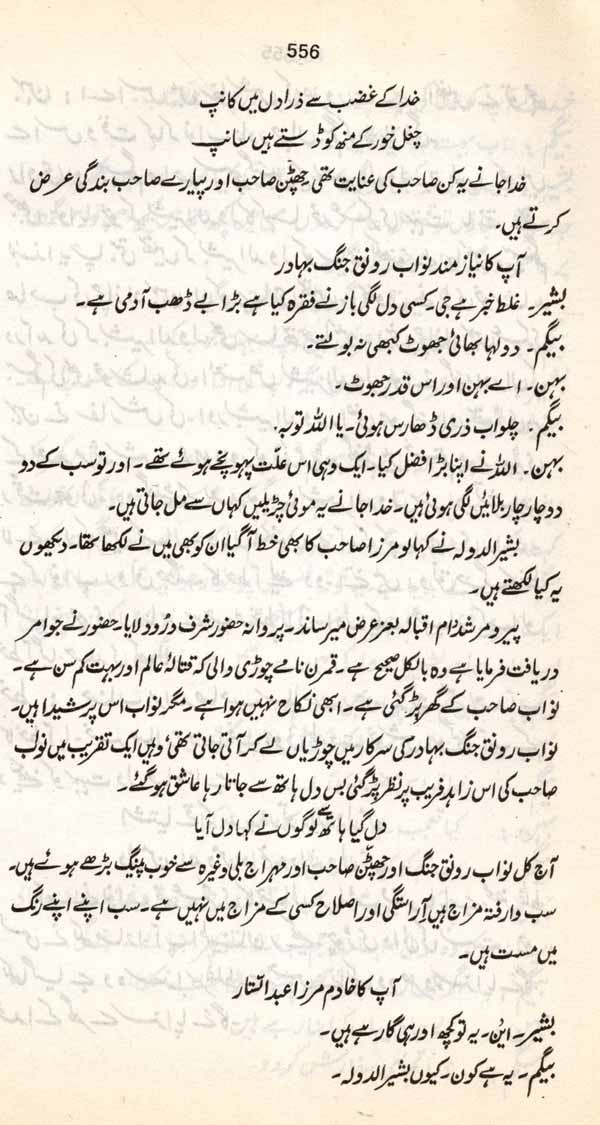 556
خدا کے غضب سے ذرا دل میں کانپ
چغل خور کے منھ کو ڈستے ہیں سانپ
خدا جانے یہ کن صاحب کی عنایت تھی چھٹن صاحب اور پیارے صاحب بندگی عرض
کرتے ہیں۔
آپ کا نیاز مند نواب رونق جنگ بہادر
بشیر۔ غلط خبر ہے جی۔ کسی دل لگی باز نے فقرہ کیا ہے بڑا بے ڈھب آدمی ہے۔
بیگم۔ دولہا بھائی جھوٹ کبھی نہ بولتے۔
بہن۔ اے بہن اور اس قدر جھوٹ۔
بیگم۔ چلو اب ذری ڈھارس ہوئی۔ یا اللہ توبہ۔
بہن۔ اللہ نے اپنا بڑا فضل کیا۔ ایک وہی اس علّت پہونچے ہوئے تھے۔ اور تو سب کے دو
دو چار چار بلائیں لگی ہوئی ہیں۔ خدا جانے یہ موئی چڑیلیں کہاں سے مل جاتی ہیں۔
بشیر الدولہ نے کہا لو مرزا صاحب کا بھی خط آگیا ان کو بھی میں نے لکھا تھا۔ دیکھوں
یہ کیا لکھتے ہیں۔
پیر و مرشد دام اقبالہ بعز عرض میرساند۔ پروانہ حضور شرف ورُود لایا۔ حضور نے جو امر
دریافت فرمایا ہے وہ بالکل صحیح ہے۔ قمرن نامے چوڑی والی کہ قتالۂ عالم اور بہت کم سن ہے۔
نواب صاحب کے گھر پڑ گئی ہے۔ ابھی نکاح نہیں ہوا ہے۔ مگر نواب اس پر شیدا ہیں۔
نواب رونق جنگ بہادر کی سرکار میں چوڑیاں لے کر آتی جاتی تھی، وہیں ایک تقریب میں نواب
صاحب کی اس زاہد فریب پر نظر پڑ گئی بس دل ہاتھ سے جاتا رہا عاشق ہو گئے۔
دل گیا ہاتھ سے لوگوں نے کہا دل آیا
آج کل نواب رونق جنگ اور چھٹن صاحب اور مہراج بلی وغیرہ سے خوب پینگ بڑھے ہوئے ہیں۔
سب وارفتہ مزاج ہیں آراستگی اور اصلاح کسی کے مزاج میں نہیں ہے۔ سب اپنے اپنے رنگ
میں مست ہیں۔
آپ کا خادم مرزا عبدالستار
بشیر۔ ایں۔ یہ تو کچھ اور ہی گا رہے ہیں۔
بیگم۔ یہ ہے کون۔ کیوں بشیر الدولہ۔